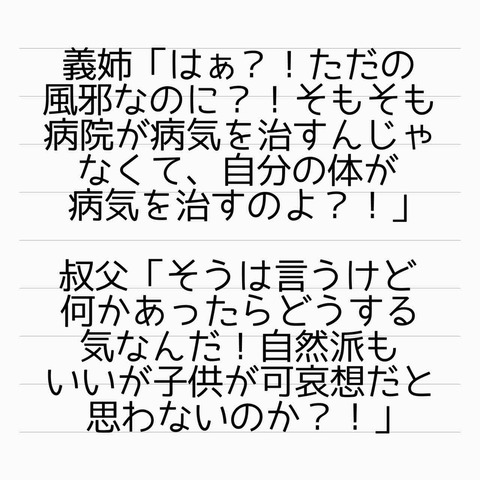 義姉「はぁ？！ただの
風邪なのに？！そもそも
病院が病気を治すんじゃ
なくて、自分の体が
病気を治すのよ？！」
叔父「そうは言うけど
何かあったらどうする
気なんだ！自然派も
いいが子供が可哀想だと
思わないのか？！」